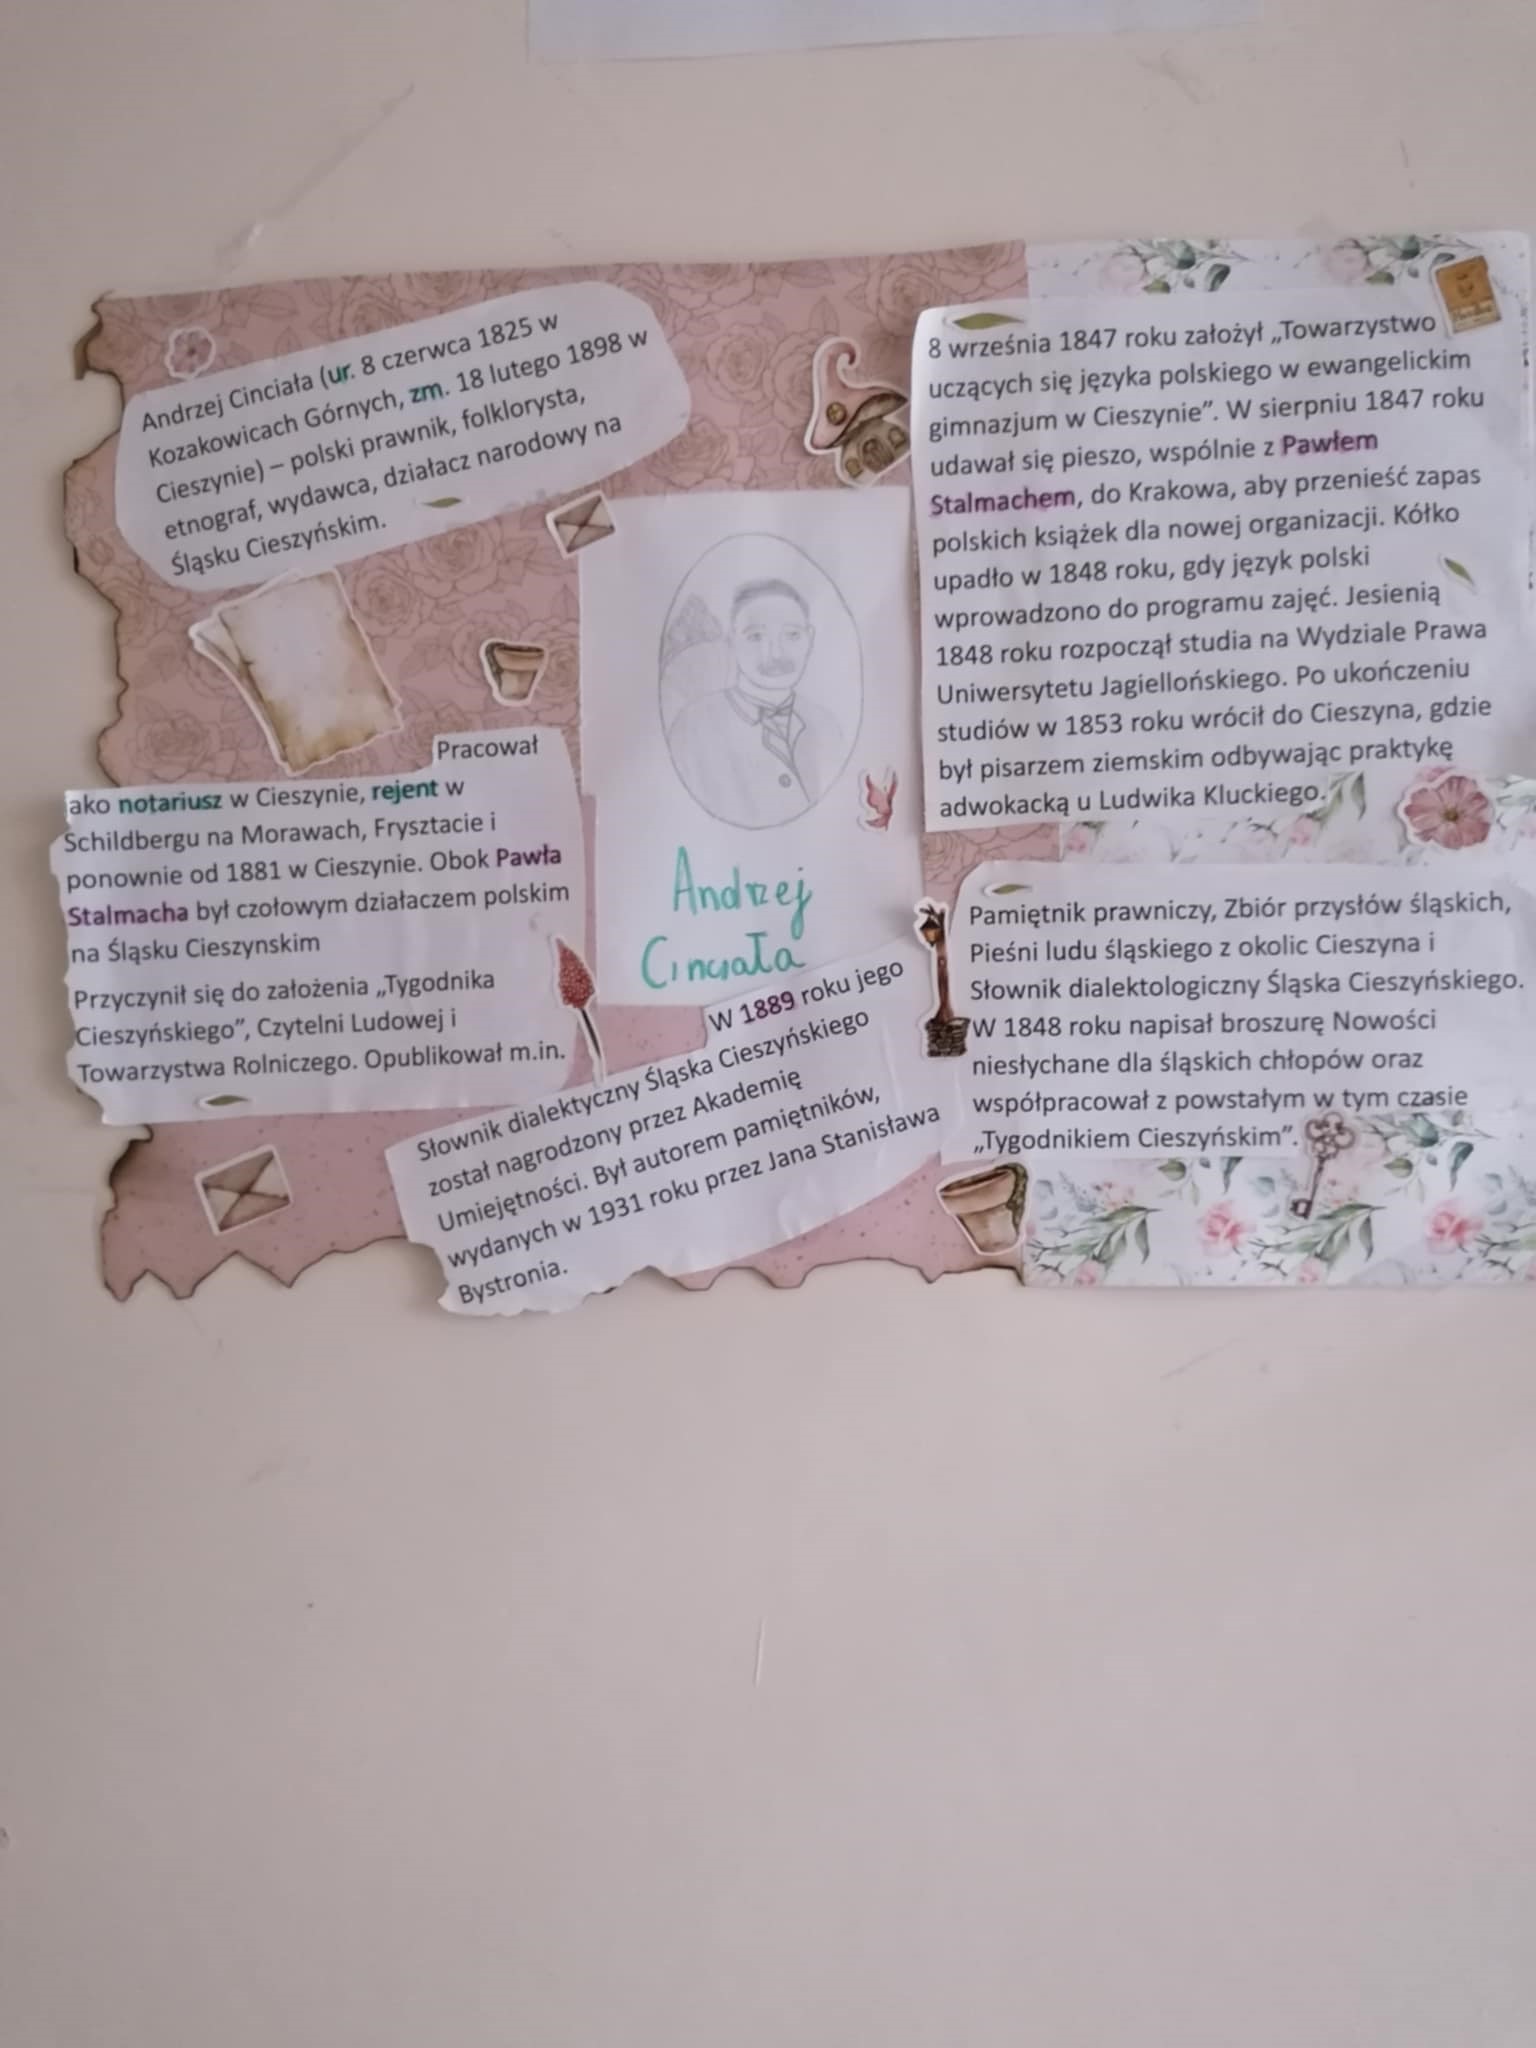 Andrzej Cinciała (ur. 8 czerwca 1825 w
Kozakowicach Górnych, zm. 18 lutego 1898 w
Cieszynie) – polski prawnik, folklorysta,
etnograf, wydawca, działacz narodowy na
Śląsku Cieszyńskim.
Pracował
jako notariusz w Cieszynie, rejent w
Schildbergu na Morawach, Frysztacie i
ponownie od 1881 w Cieszynie. Obok Pawła
Stalmacha był czołowym działaczem polskim
na Śląsku Cieszynskim
Przyczynił się do założenia „Tygodnika
Cieszyńskiego”, Czytelni Ludowej i
Towarzystwa Rolniczego. Opublikował m.in.
Andrzej
Cinciała
W 1889 roku jego
Słownik dialektyczny Śląska Cieszyńskiego
został nagrodzony przez Akademię
Umiejętności. Był autorem pamiętników,
wydanych w 1931 roku przez Jana Stanisława
Bystronia.
8 września 1847 roku założył „Towarzystwo
uczących się języka polskiego w ewangelickim
gimnazjum w Cieszynie”. W sierpniu 1847 roku
udawał się pieszo, wspólnie z Pawłem
Stalmachem, do Krakowa, aby przenieść zapas
polskich książek dla nowej organizacji. Kółko
upadło w 1848 roku, gdy język polski
wprowadzono do programu zajęć. Jesienią
1848 roku rozpoczął studia na Wydziale Prawa
Uniwersytetu Jagiellońskiego. Po ukończeniu
studiów w 1853 roku wrócił do Cieszyna, gdzie
był pisarzem ziemskim odbywając praktykę
adwokacką u Ludwika Kluckiego.
Pamiętnik prawniczy, Zbiór przysłów śląskich,
Pieśni ludu śląskiego z okolic Cieszyna i
Słownik dialektologiczny Śląska Cieszyńskiego.
W 1848 roku napisał broszurę Nowości
niesłychane dla śląskich chłopów oraz
współpracował z powstałym w tym czasie
„Tygodnikiem Cieszyńskim”.